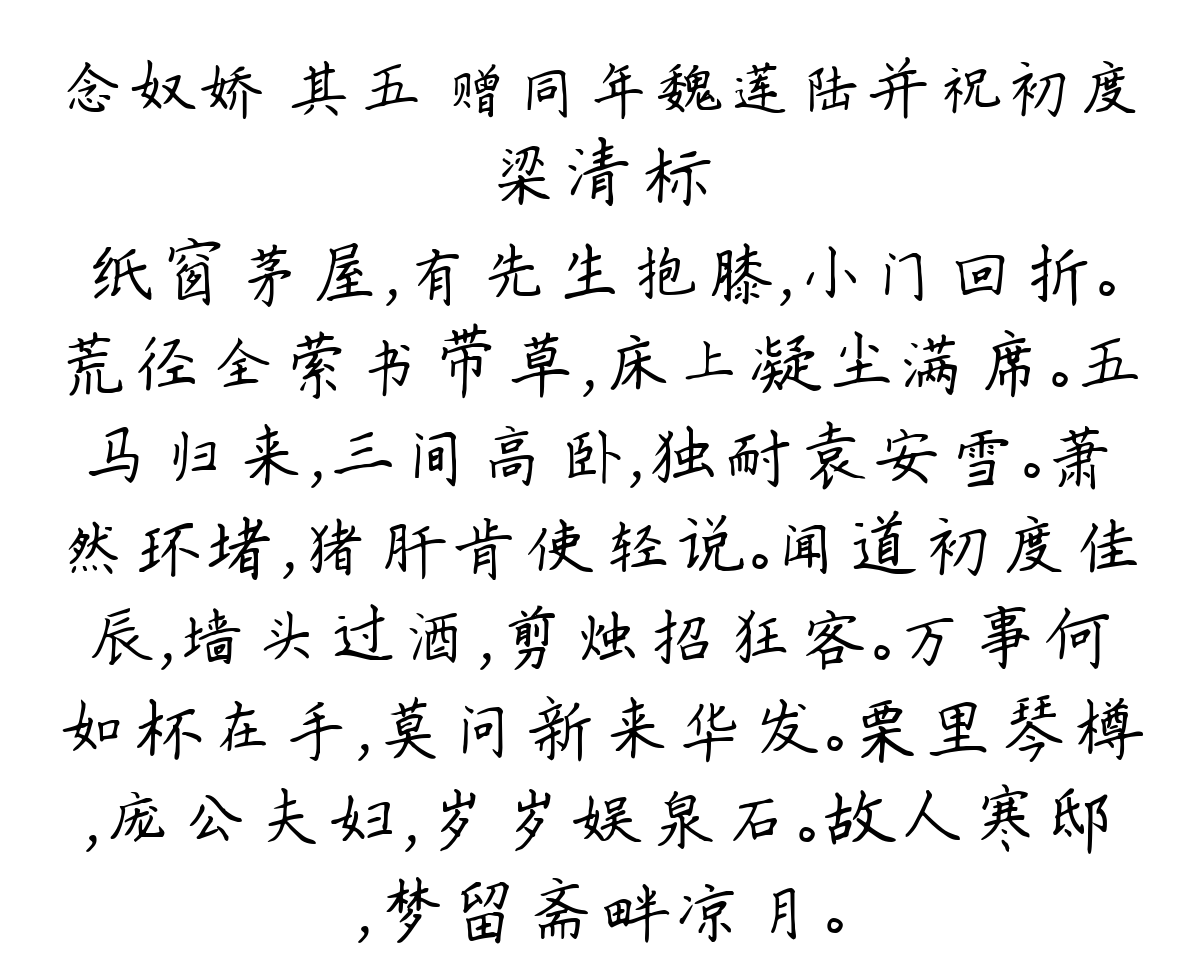 念奴娇 其五 赠同年魏莲陆并祝初度
梁清标
纸窗茅屋,有先生抱膝,小门回折。
荒径全萦书带草,床上凝尘满席。五
马归来,三间高卧,独耐袁安雪。萧
然环堵,猪肝肯使轻说。闻道初度佳
辰,墙头过酒,剪烛招狂客。万事何
如杯在手,莫问新来华发。栗里琴樽
,庞公夫妇,岁岁娱泉石。故人寒邸
,梦留斋畔凉月。